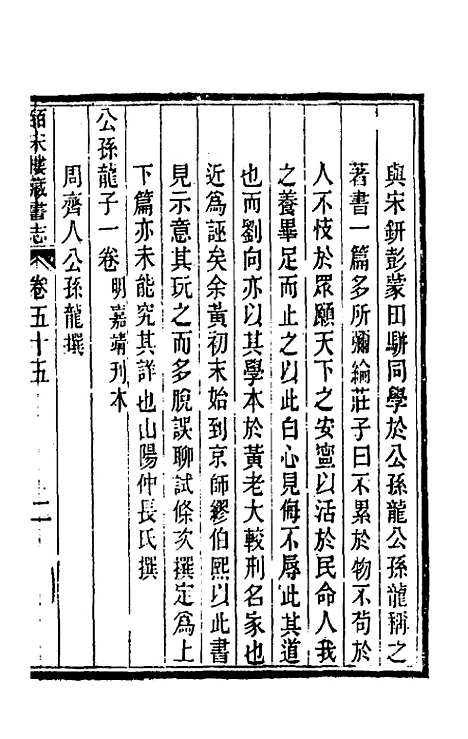 與宋鈃彭蒙田駢同學於公孫龍公孫龍稱之
著書一篇多所彌綸莊子曰不累於物不苟於
人不忮於眾願天下之安寧以活於民命人我
之養畢足而止之以此白心見侮不辱此其道
也而劉向亦以其學本於黃老大較刑名家也
近為誣矣余黃初末始到京師繆伯熙以此書
見示意其玩之而多脫誤聊試條次撰定為上
下篇亦未能究其詳也山陽仲長氏撰
公孫龍子一卷 明嘉靖刊本
周齊人公孫龍撰
皕宋樓藏書志 卷五十五 二